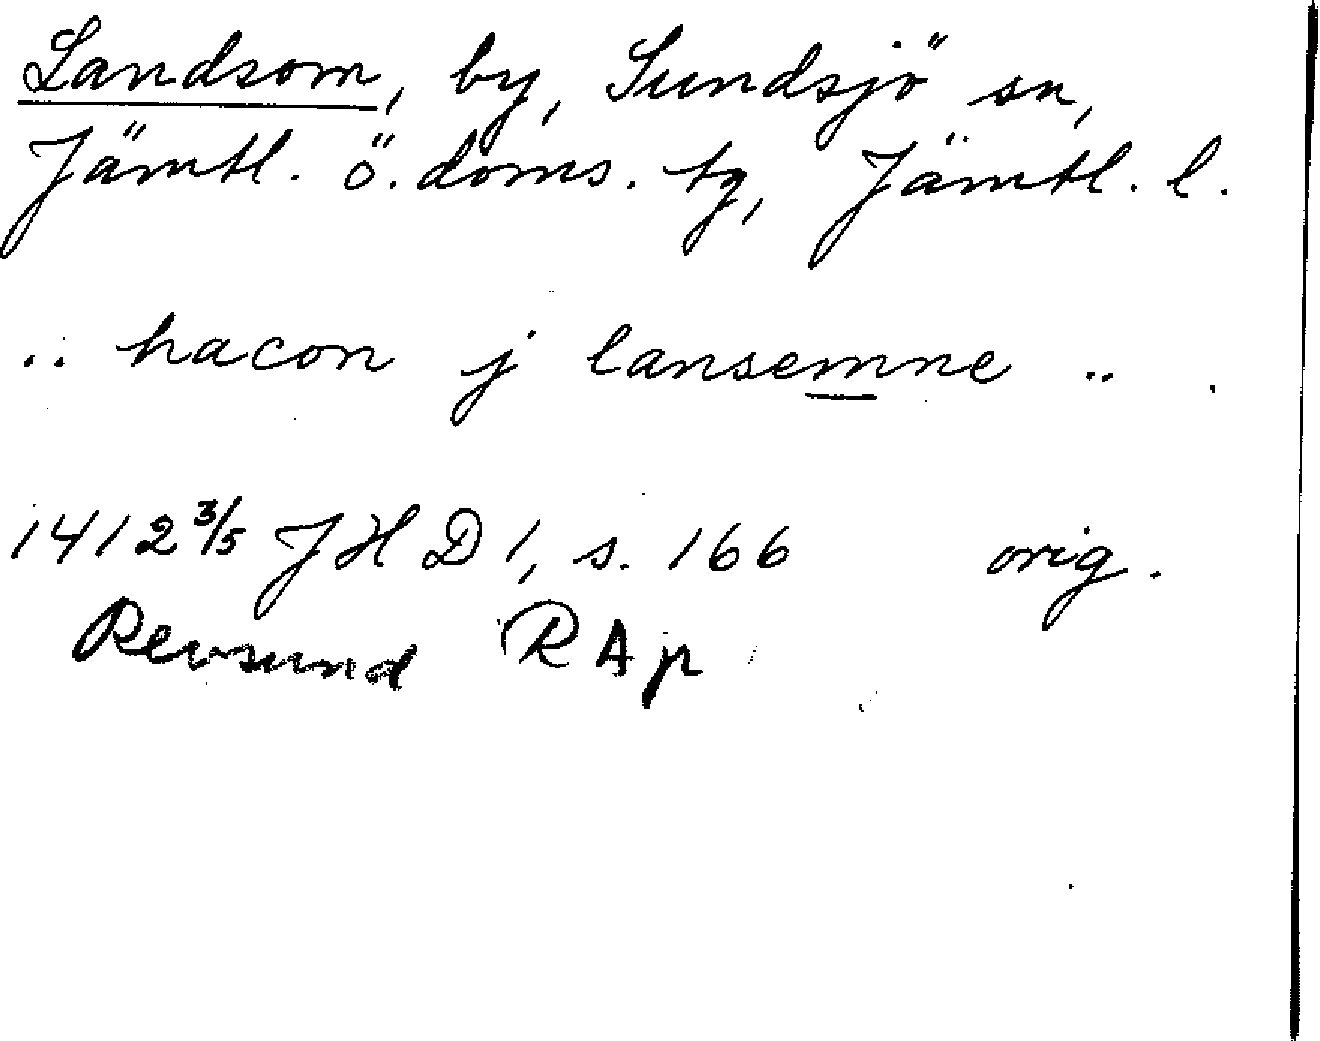 Landsom, by, Sundsjö sn,
Jämtl. ö. doms. tg, Jämtl. l.
.. hacon j lansemne ..
1412 3/5 JHD 1, s. 166 orig.
Revsund RAp